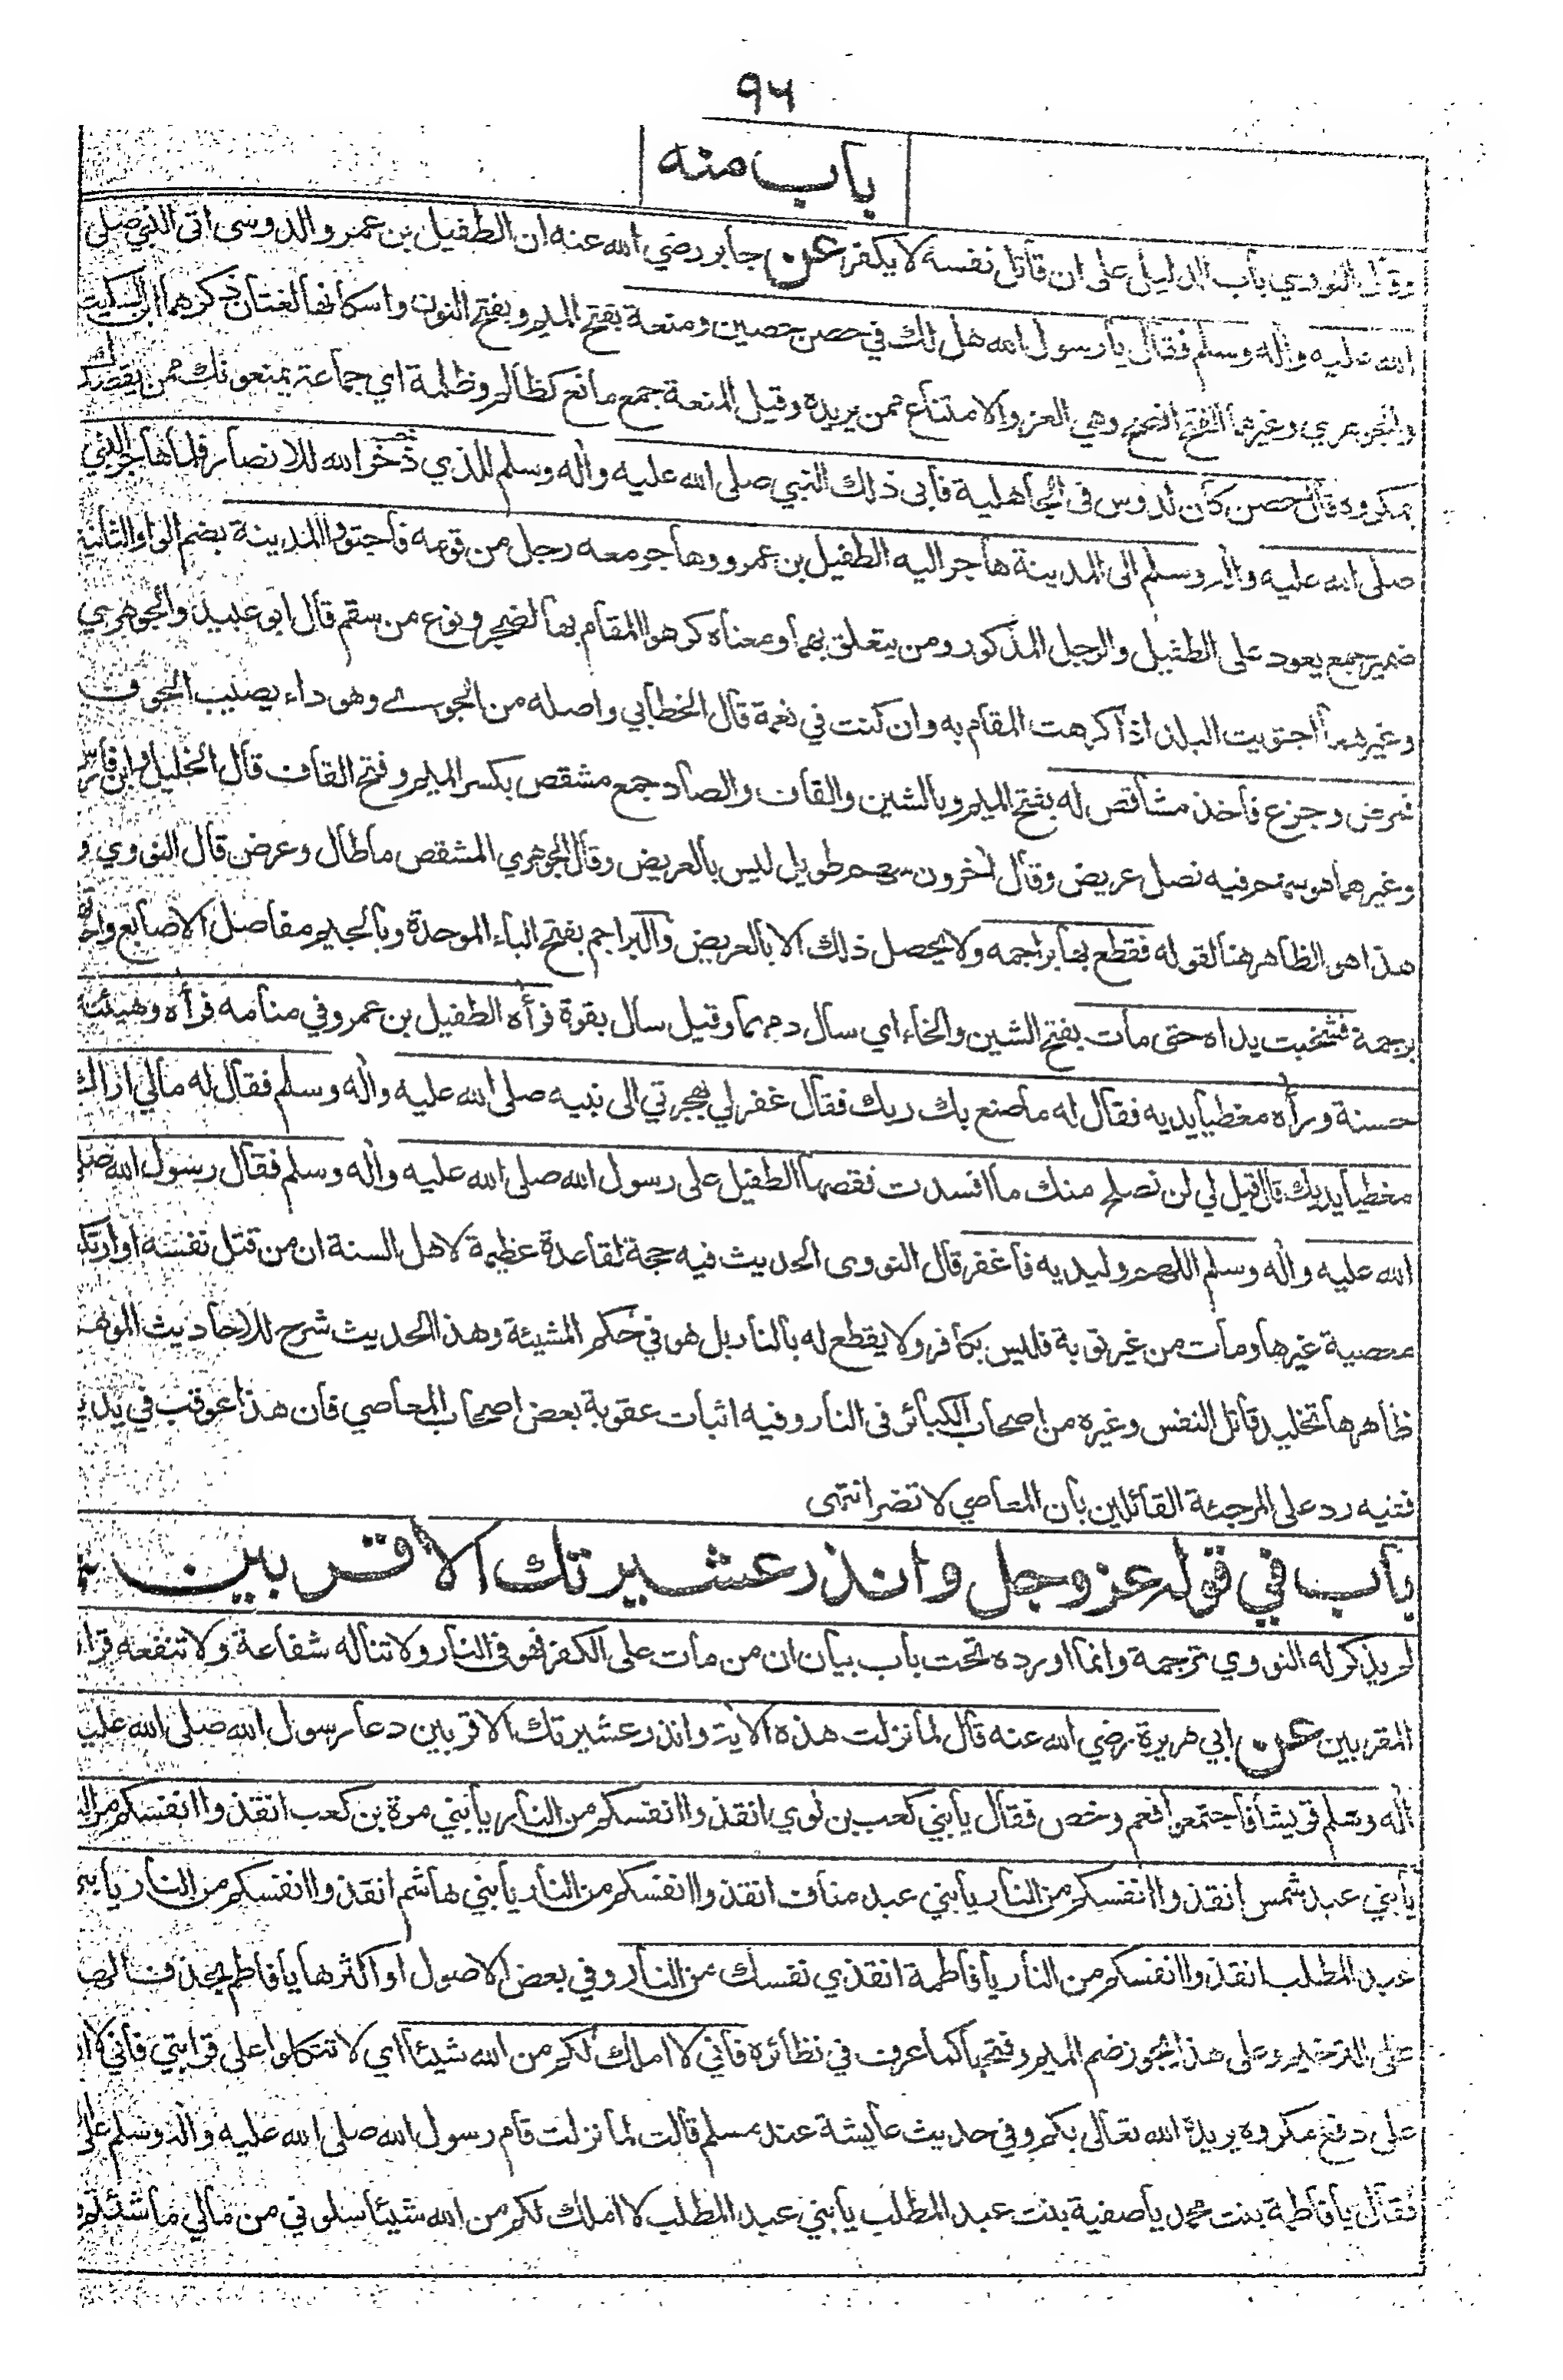 ٩٤
باب منه
وقال النووي باب الدليل على ان قاتل نفسه لا يكفر عن جابر رضي الله عنه ان الطفيل بن عمرو الدوسي اتى النبي صلى
الله عليه واله وسلم فقال يا رسول الله هل لك في حصن حصين ومنعة بفتح الميم وبفتح النون واسكانها لغتان ذكرهما ابن السكيت
والجوهري وغيرهما الفتح افصح وهي العز والامتناع ممن يريده وقيل المنعة جمع مانع كظالم وظلمة اي جماعة يمنعونك ممن يقصدك
بمكروه قال حصن كان لدوس في الجاهلية فابى ذلك النبي صلى الله عليه واله وسلم للذي ذخر الله للانصار فلما هاجر النبي
صلى الله عليه واله وسلم الى المدينة هاجر اليه الطفيل بن عمرو وهاجر معه رجل من قومه فاجتووا المدينة بضم الواو الثانية
ضمير جمع يعود على الطفيل والرجل المذكور ومن يتعلق بهما ومعناه كرهوا المقام بها لضجر ونوع من سقم قال ابو عبيد والجوهري
وغيرهما اجتويت البلد اذا كرهت المقام به وان كنت في نعمة قال الخطابي واصله من الجوى وهو داء يصيب الجوف
فمرض وجزع فاخذ مشاقص له بفتح الميم وبالشين والقاف والصاد جمع مشقص بكسر الميم وفتح القاف قال الخليل وابن فارس
وغيرهما هو سهم فيه نصل عريض وقال اخرون سهم طويل ليس بالعريض وقال الجوهري المشقص ما طال وعرض قال النووي و
هذا هو الظاهر هنا لقوله فقطع بها براجمه ولا يحصل ذلك الا بالعريض والبراجم بفتح الباء الموحدة وبالجيم مفاصل الاصابع واحدها
برجمة فشخبت يداه حتى مات بفتح الشين والخاء اي سال دمهما وقيل سال بقوة فرآه الطفيل بن عمرو في منامه فرآه وهيئته
حسنة ورآه مغطيا يديه فقال له ما صنع بك ربك فقال غفر لي بهجرتي الى نبيه صلى الله عليه واله وسلم فقال له مالي اراك
مغطيا يديك قال قيل لي لن نصلح منك ما افسدت فقصها الطفيل على رسول الله صلى الله عليه واله وسلم فقال رسول الله صلى
الله عليه واله وسلم اللهم وليديه فاغفر قال النووي الحديث فيه حجة لقاعدة عظيمة لاهل السنة ان من قتل نفسه او ارتكب
معصية غيرها ومات من غير توبة فليس بكافر ولا يقطع له بالنار بل هو في حكم المشيئة وهذا الحديث شرح للاحاديث الموهم
ظاهرها تخليد قاتل النفس وغيره من اصحاب الكبائر في النار وفيه اثبات عقوبة بعض اصحاب المعاصي فان هذا عوقب في يديه
ففيه رد على المرجئة القائلين بان المعاصي لا تضر انتهى
باب في قوله عز وجل وانذر عشيرتك الاقربين
لم يذكر له النووي ترجمة وانما اورده تحت باب بيان ان من مات على الكفر فهو في النار ولا تناله شفاعة ولا تنفعه قرابة
المقربين عن ابي هريرة رضي الله عنه قال لما نزلت هذه الاية وانذر عشيرتك الاقربين دعا رسول الله صلى الله عليه
واله وسلم قريشا فاجتمعوا فعم وخص فقال يا بني كعب بن لوي انقذوا انفسكم من النار يا بني مرة بن كعب انقذوا انفسكم من النار
يا بني عبد شمس انقذوا انفسكم من النار يا بني عبد مناف انقذوا انفسكم من النار يا بني هاشم انقذوا انفسكم من النار يا بني
عبد المطلب انقذوا انفسكم من النار يا فاطمة انقذي نفسك من النار وفي بعض الاصول او اكثرها يا فاطم بحذف الهاء
على الترخيم وعلى هذا يجوز ضم الميم وفتحها كما عرف في نظائره فاني لا املك لكم من الله شيئا اي لا تتكلوا على قرابتي فاني لا
على دفع مكروه يريده الله تعالى بكم وفي حديث عايشة عند مسلم قالت لما نزلت قام رسول الله صلى الله عليه واله وسلم على
فقال يا فاطمة بنت محمد يا صفية بنت عبد المطلب يا بني عبد المطلب لا املك لكم من الله شيئا سلوني من مالي ما شئتم